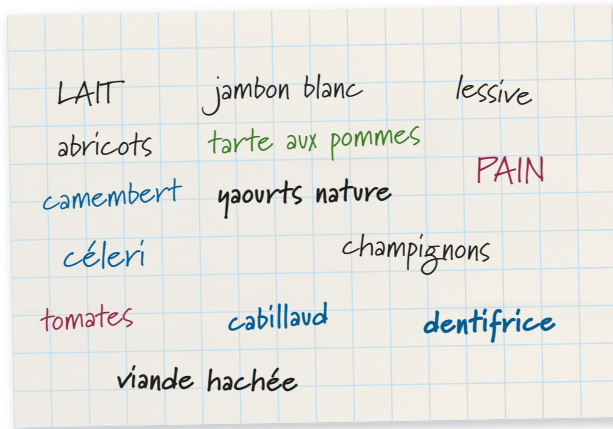 LAIT jambon blanc lessive
abricots tarte aux pommes
PAIN
camembert yaourts nature
céleri champignons
tomates cabillaud dentifrice
viande hachée